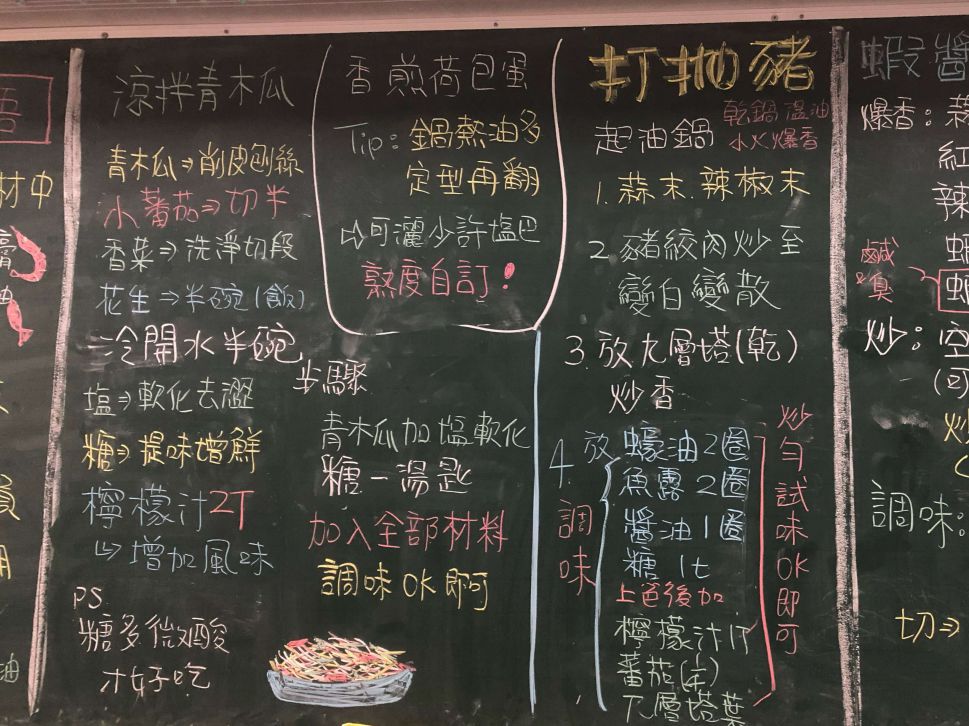 涼拌青木瓜
青木瓜⇒削皮刨絲
小蕃茄⇒切半
香菜⇒洗淨切段
花生⇒半碗(飯)
冷開水半碗
塩⇒軟化去澀
糖⇒提味增鮮
檸檬汁2T
↳增加風味
PS
糖多微酸
才好吃
步驟
青木瓜加塩軟化
糖一湯匙
加入全部材料
調味OK即可
香煎荷包蛋
Tip:鍋熱油多
定型再翻
⇨可灑少許塩巴
熟度自訂!
打拋豬
起油鍋
乾鍋溫油
小火爆香
1.蒜末.辣椒末
2.豬絞肉炒至
變白變散
3.放九層塔(乾)
炒香
4.放
調味
蠔油2圈
魚露2圈
醬油1圈
糖 1t
上色後加
檸檬汁1T
蕃茄
九層塔葉
炒勻試味OK即可
蝦醬
爆香:蒜
紅
辣
鹹
臭
炒:空
(可
炒
調味:
切⇒
材中
油
員
用
油